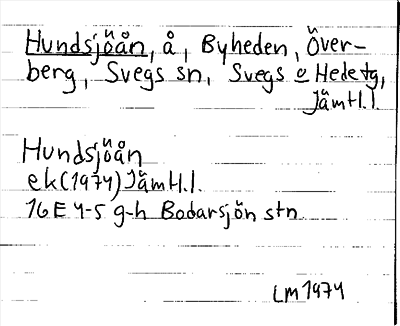 Hundsjöån, å, Byheden, Över-
berg, Svegs sn, Svegs o Hede tg,
Jämtl.l.
Hundsjöån
ek(1974) Jämtl.l.
16E 4-5 g-h Bodarsjön stn
LM 1974